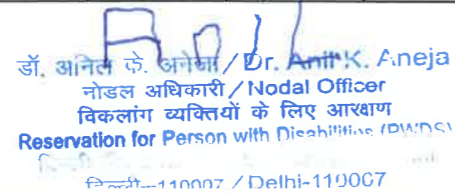 डॉ. अनिल के. अनेजा / Dr. Anil K. Aneja
नोडल अधिकारी / Nodal Officer
विकलांग व्यक्तियों के लिए आरक्षण
Reservation for Person with Disabilities (PWDS)
दिल्ली-110007 / Delhi-110007